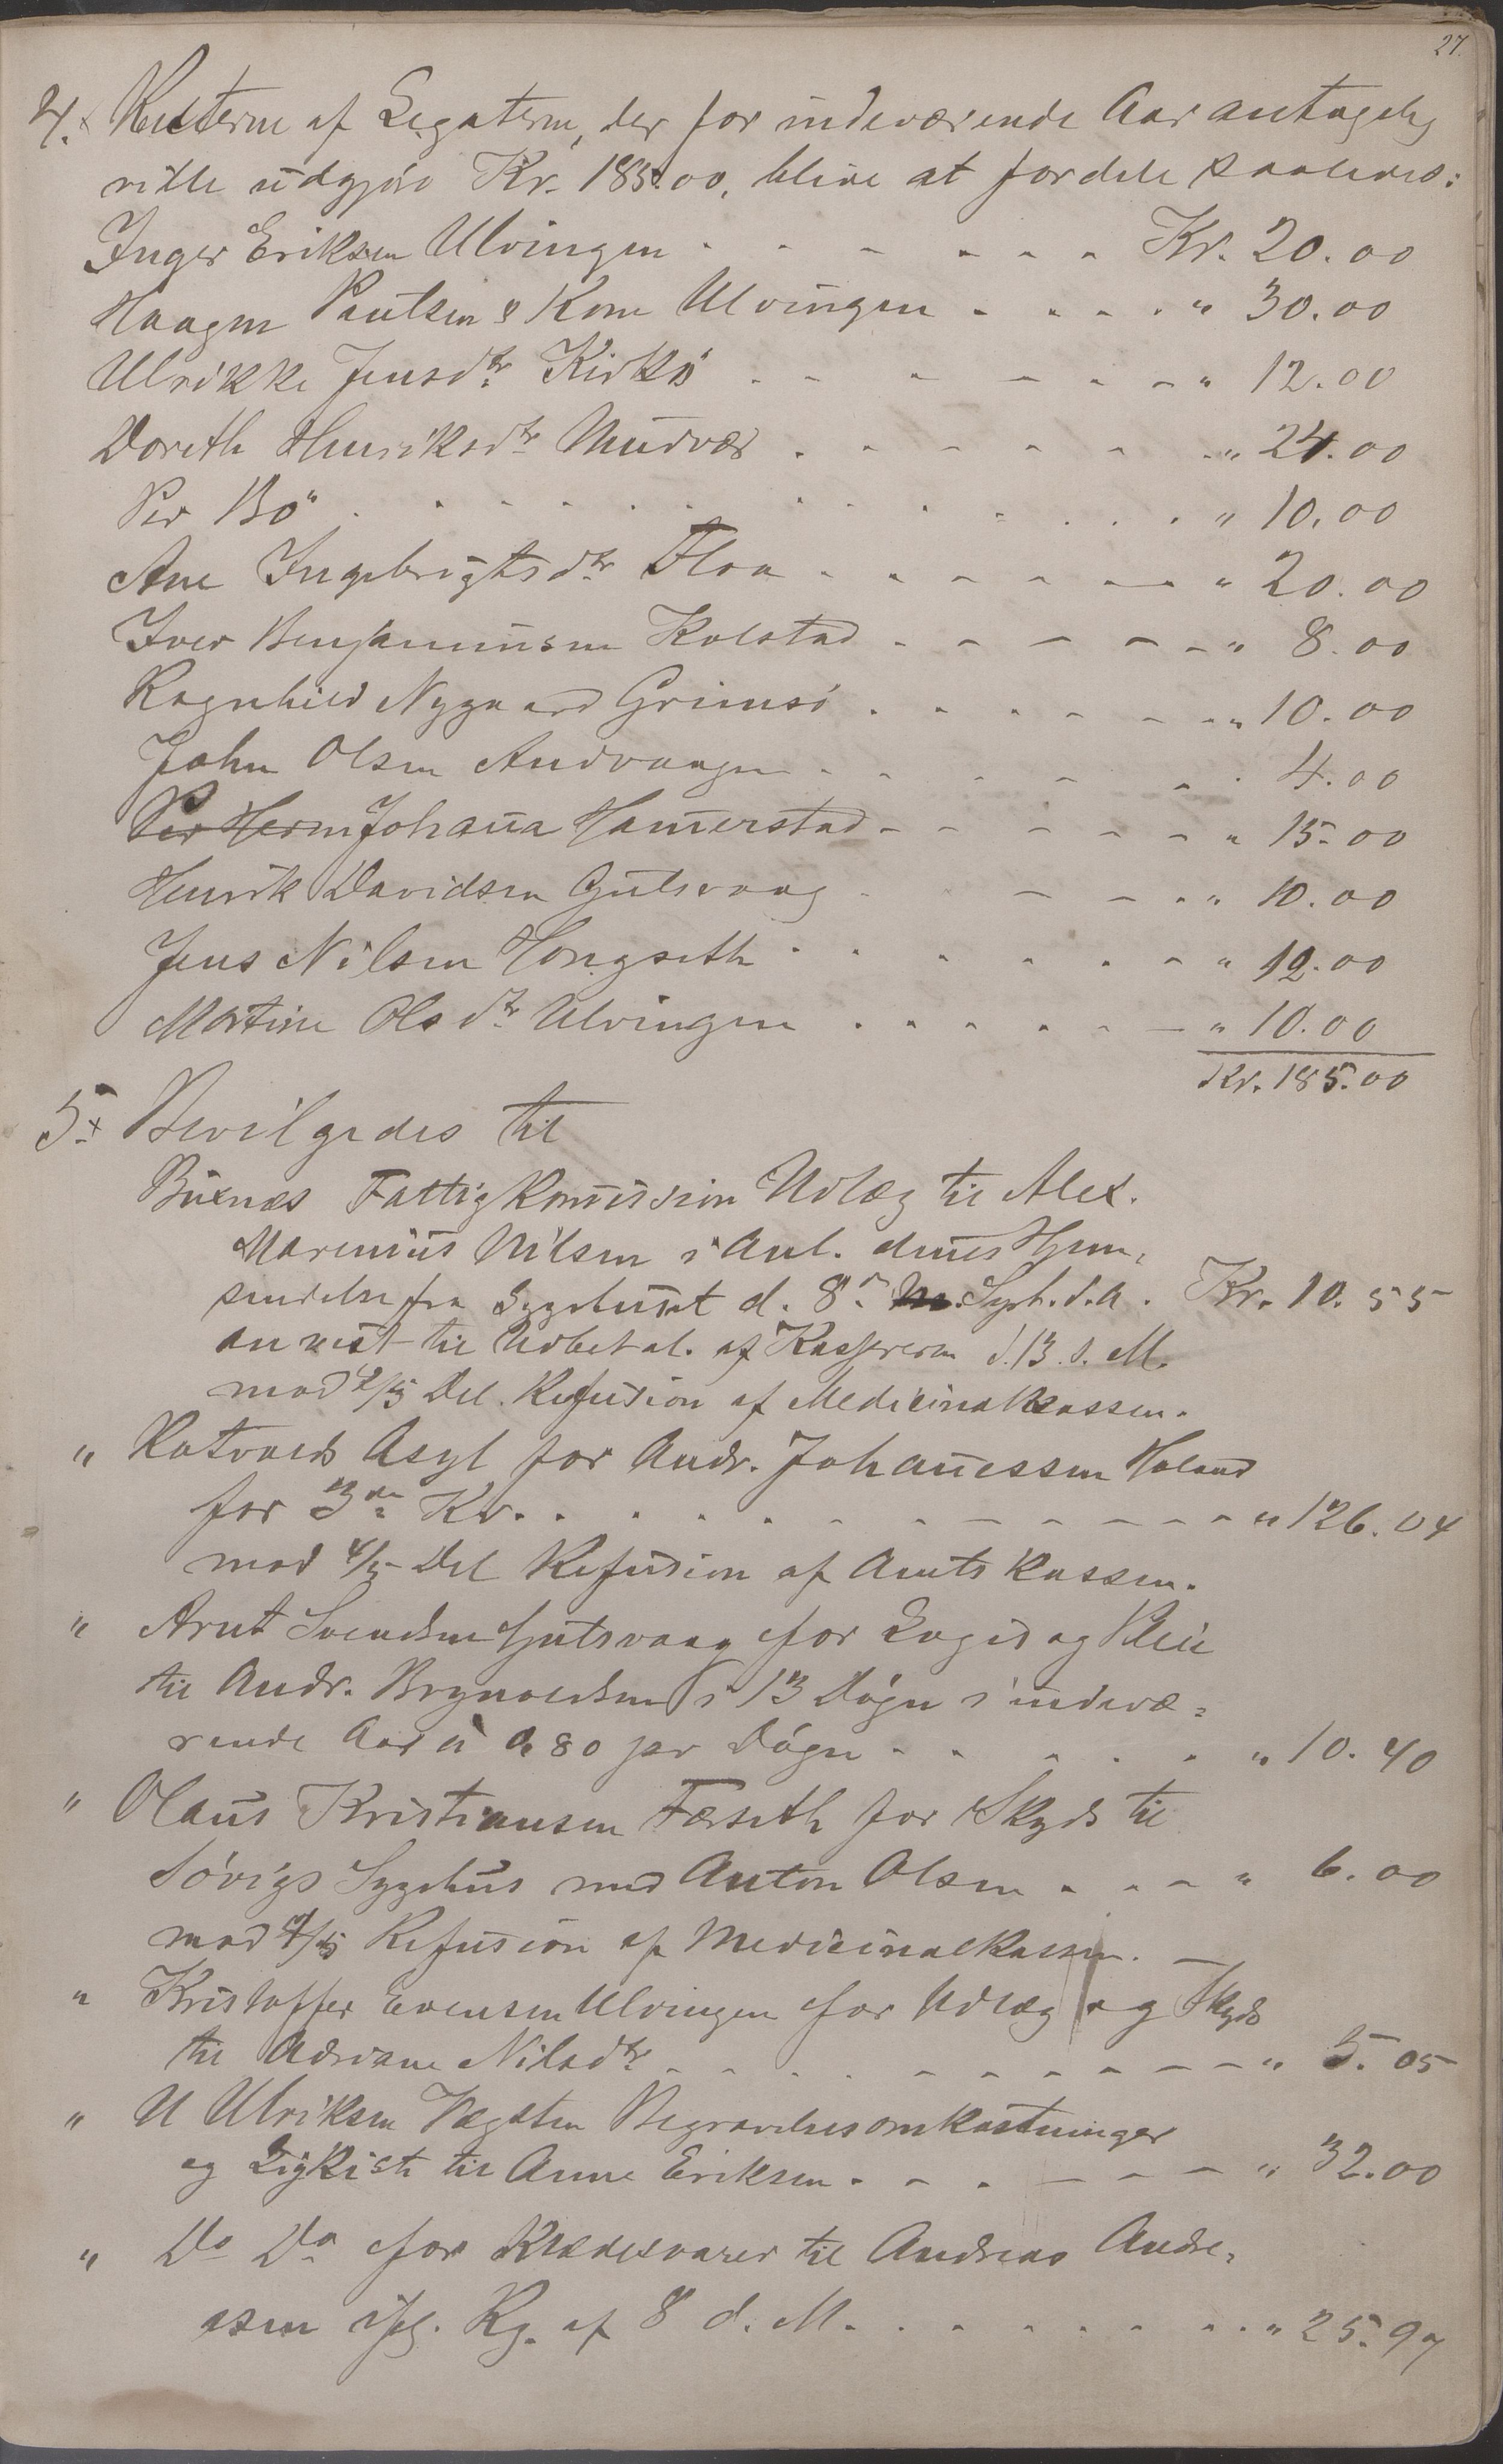 27.
4. x Renterne af Legaterne, der for indeværende Aar antagelig
ville udgjöre Kr. 185.00, blive at fordele saaledes:
Inger Eriksen Ulvingen - - - - - - Kr. 20.00
Haagen Paulsen & Kone Ulvingen - - - - " 30.00
Ulrikke Jensdtr Kirkö - - - - - - " 12.00
Doreth Henriksdtr Mudvær - - - - - " 24.00
Per Bö - - - - - - - - - - " 10.00
Ane Ingebrigtsdtr Floa - - - - - - " 20.00
Iver Benjaminsen Kolstad - - - - - " 8.00
Ragnhild Nygaard Grimsö - - - - - - " 10.00
John Olsen Andvaagen - - - - - - 4.00
Per Herm Johanna Hamerstad - - - - - - " 15.00
Henrik Davidsen Gulsvaag - - - - - " 10.00
Jens Nilsen Hongseth - - - - - - " 12.00
Martine Olsdtr Ulvingen - - - - - - " 10.00
Kr. 185.00
5. x Bevilgedes til
Buxnæs Fattigkomission Udlæg til Alex.
Marenius Nilsen i Anl. dennes Hjem-
sendelse fra Sygehuset d. 8de Septr. d.A. Kr. 10.55
anvist til Udbetal. af Kasserern d. 13. s. M.
mod 4/5 Del. Refusion af Medicinalkassen.
" Rotvolds Asyl for Andr. Johanessen Holand
for 3die Kv. - - - - - - - - - " 126.04
mod 4/5 Del Refusion af Amtskassen.
" Arnt Svendsen Gulsvaag for Logis og Pleie
til Andr. Brynoldsen i 13 Dögn i indevæ-
rende Aar à 0.80 per Dögn - - - - - " 10.40
" Olaus Kristiansen Færseth for Skyds til
Sövigs Sygehus med Anton Olsen - - - " 6.00
mod 4/5 Refusion af Medicinalkassen. -
" Kristoffer Evensen Ulvingen for Udlæg og Skyds
til Adriane Nilsdtr - - - - - - - - " 5.05
" U Ulriksen Vægsten Begravelsesomkostninger
og Ligkiste til Anne Eriksen - - - - - - " 32.00
" Do Do for Klædesvarer til Andreas Andre-
asen ifg. Rg. af 8 d. M. - - - - - - - " 25.97